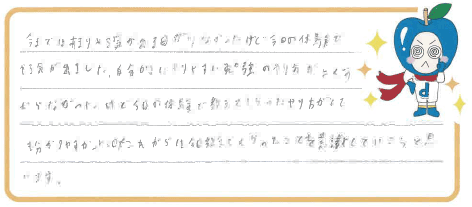 今まではあまりやる気が出る日がなかったけど今日の体験で
やる気が出ました。自分が やりやすい勉強のやり方がよく
わからなかったけど今日の体験で教えてもらったやり方がとて
もわかりやすかったしこれからは今日教えてくれたことを意識していこうと思
います。